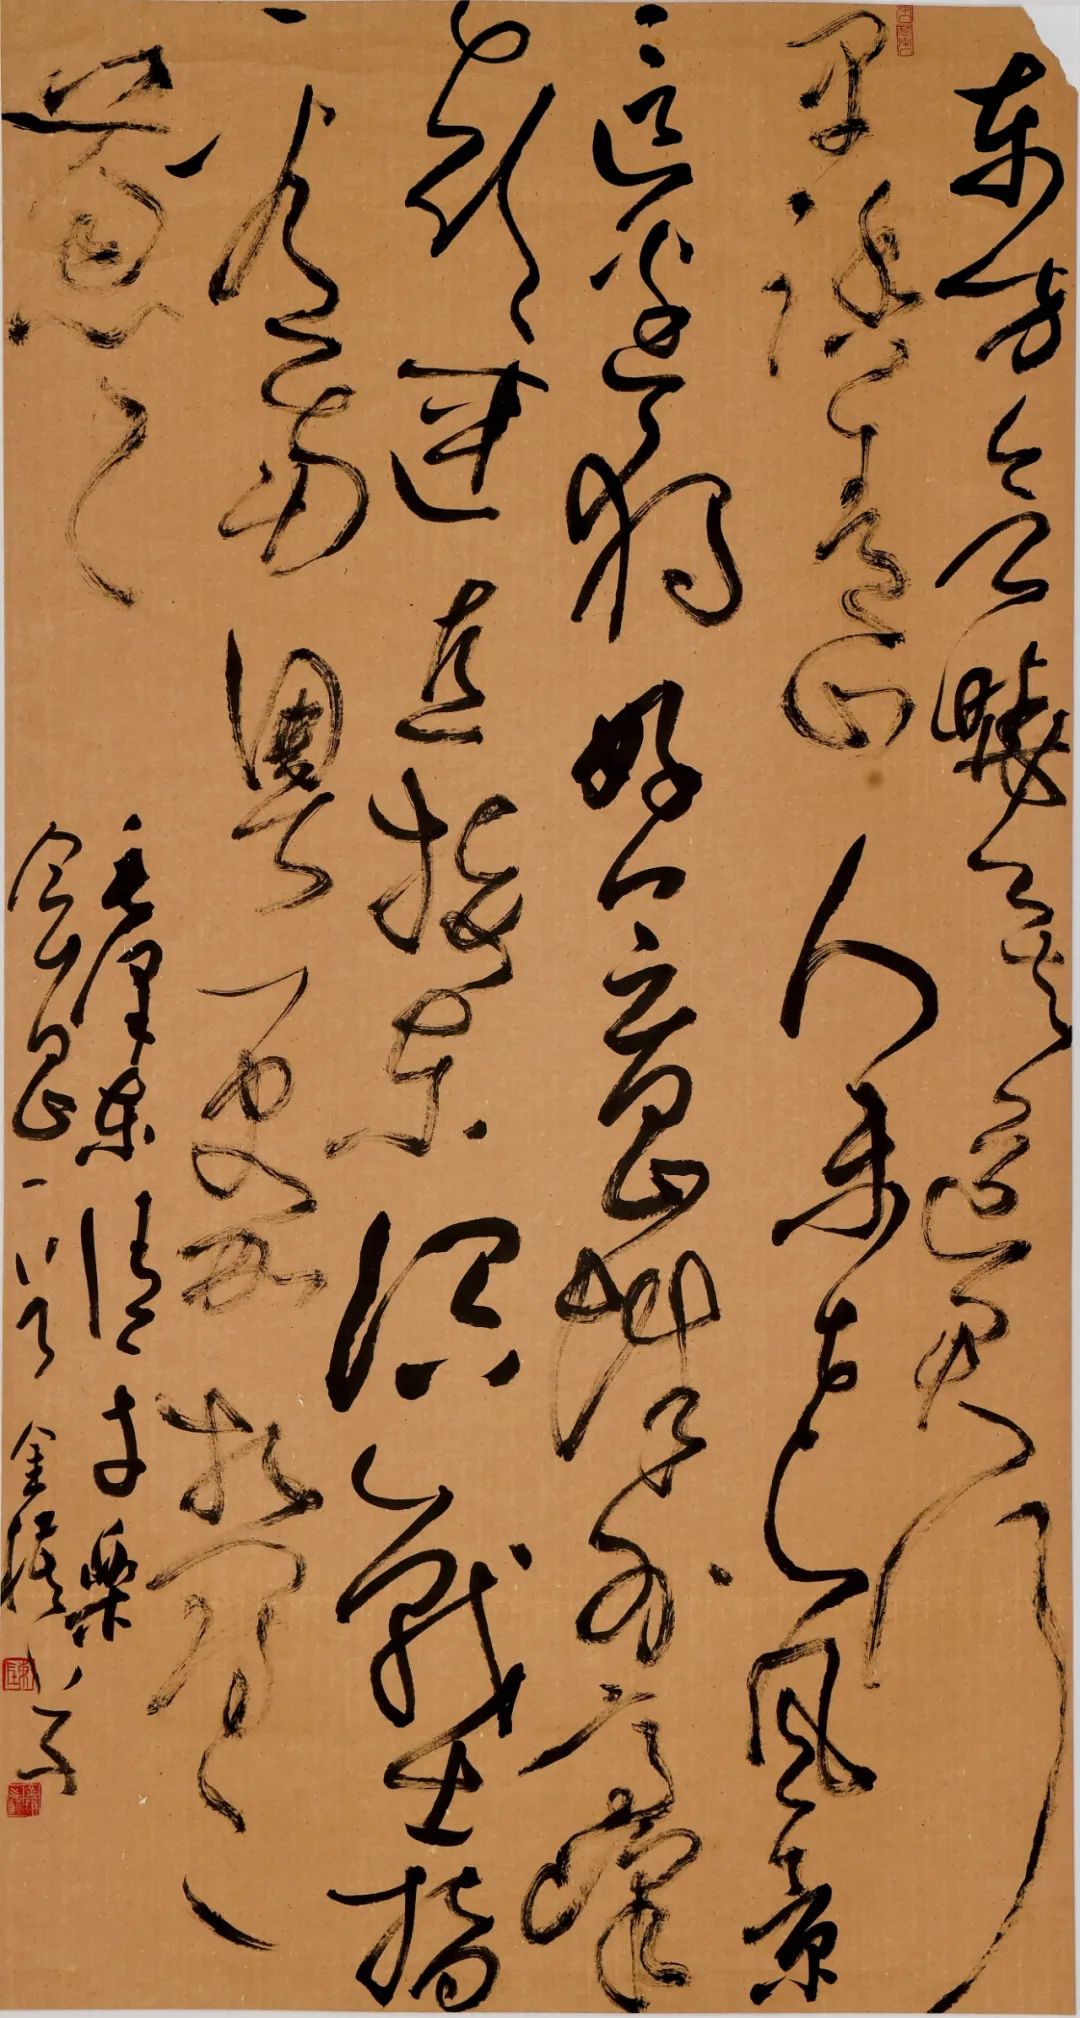 东方欲曉莫道君行
早踏遍青山人未老风景
這边獨好會昌城外高峰
颠連直接东溟战士指
看南粤更加郁々
葱々
毛澤东清平樂
会昌一阕